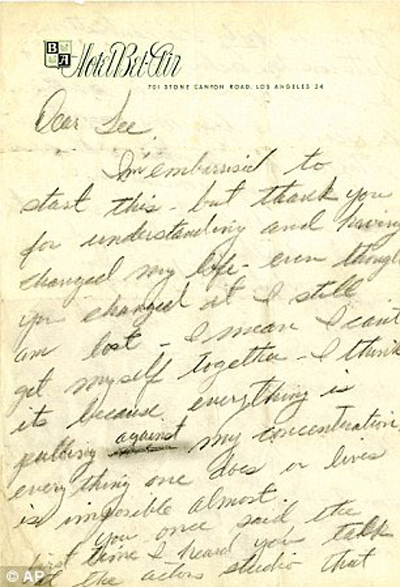 BA Hotel Bel-Air
701 STONE CANYON ROAD, LOS ANGELES 24
Dear Lee,
I'm embarrisid to
start this - but thank you
for understanding and having
changed my life - even though
you changed it I still
am lost - I mean I cant
get myself together - I think
its because everything is
pulling against my concentration,
everything one does or lives
is imposible almost.
You once said the
first time I heard you talk
at the actors studio that
© AP